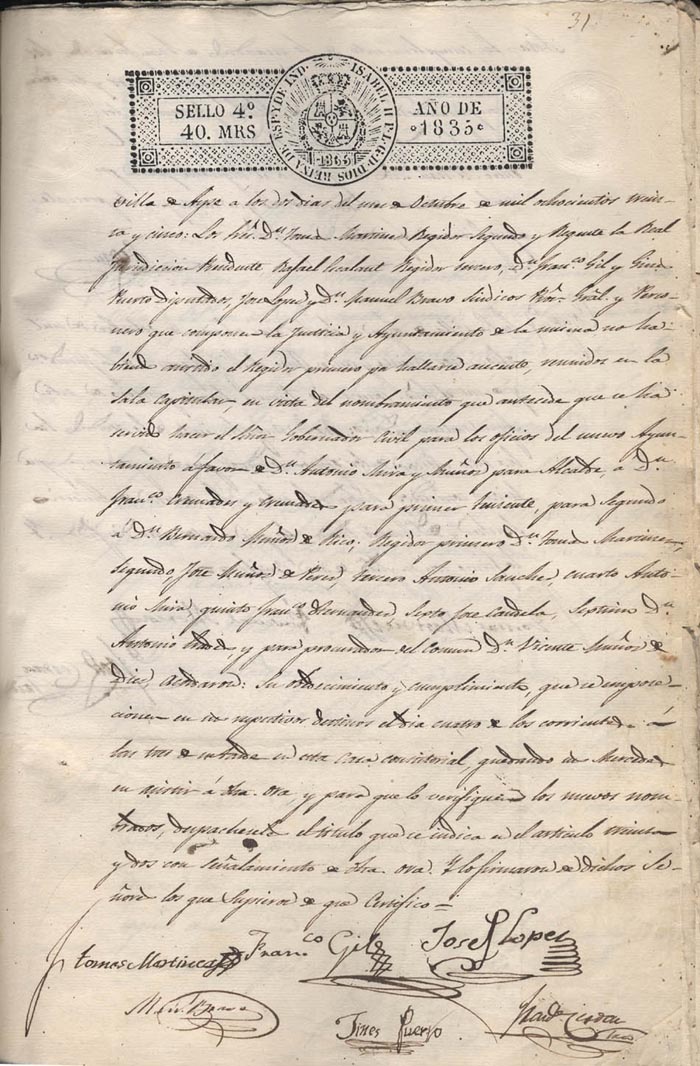 31
SELLO 4º
40. MRS
ISABEL II P.L.G.D.DIOS REINA DE ESP.Y DE IND.
1835
AÑO DE
1835
Villa de Aspe a los dos dias del mes de Octubre de mil ochocientos trein-
ta y cinco: Los Sres. Dn. Tomas Martinez Regidor Segundo y Regente la Real
Jurisdicion Rafael Regidor tercero, Dn. Franco. Gil y Gines
Puerto Diputados, Jose Lopez y Dn. Manuel Bravo Sindicos Pror. Gral. y Perso-
nero que componen la Justicia y Ayuntamiento de la misma no ha
biendo asistido el Regidor primero pr. hallarse ausente, reunidos en la
Sala Capitular, en vista del nombramiento que antecede que se ha
servido hacer el Señor Gobernador Civil para los oficios del nuevo Ayun-
tamiento á favor de Dn. Antonio Mira y Muñoz para Alcalde, a Dn.
Franco. Cremades y Cremades para primer teniente, para Segundo
a Dn. Bernardo Muñoz de Rico, Regidor primero Dn. Tomas Martinez,
segundo Jose Muñoz de Perez, tercero Antonio Sanchez, cuarto Anto-
nio Mira, quinto Franco. Hernandez, Sexto Jose Candela, Septimo Dn.
Antonio y para procurador del Comun Dn. Vicente Muñoz de
Diez Acordaron: Su obedecimiento y cumplimiento, que se impose-
cionen en sus respectivos destinos el dia cuatro de los corrientes á
las tres de su tarde en esta Casa consistorial, quedando sus Mercedes
en asistir á dha. ora, y para que lo verifiquen los nuevos nom-
brados, despachese el titulo que se indica en el articulo treinta
y dos con señalamiento de dha. ora. Y lo firmaron de dichos Se-
ñores los que Supieron de que Certifico =
Tomas Martinez
Franco. Gil
Josef Lopez
Manl. Bravo
Jines Puerto